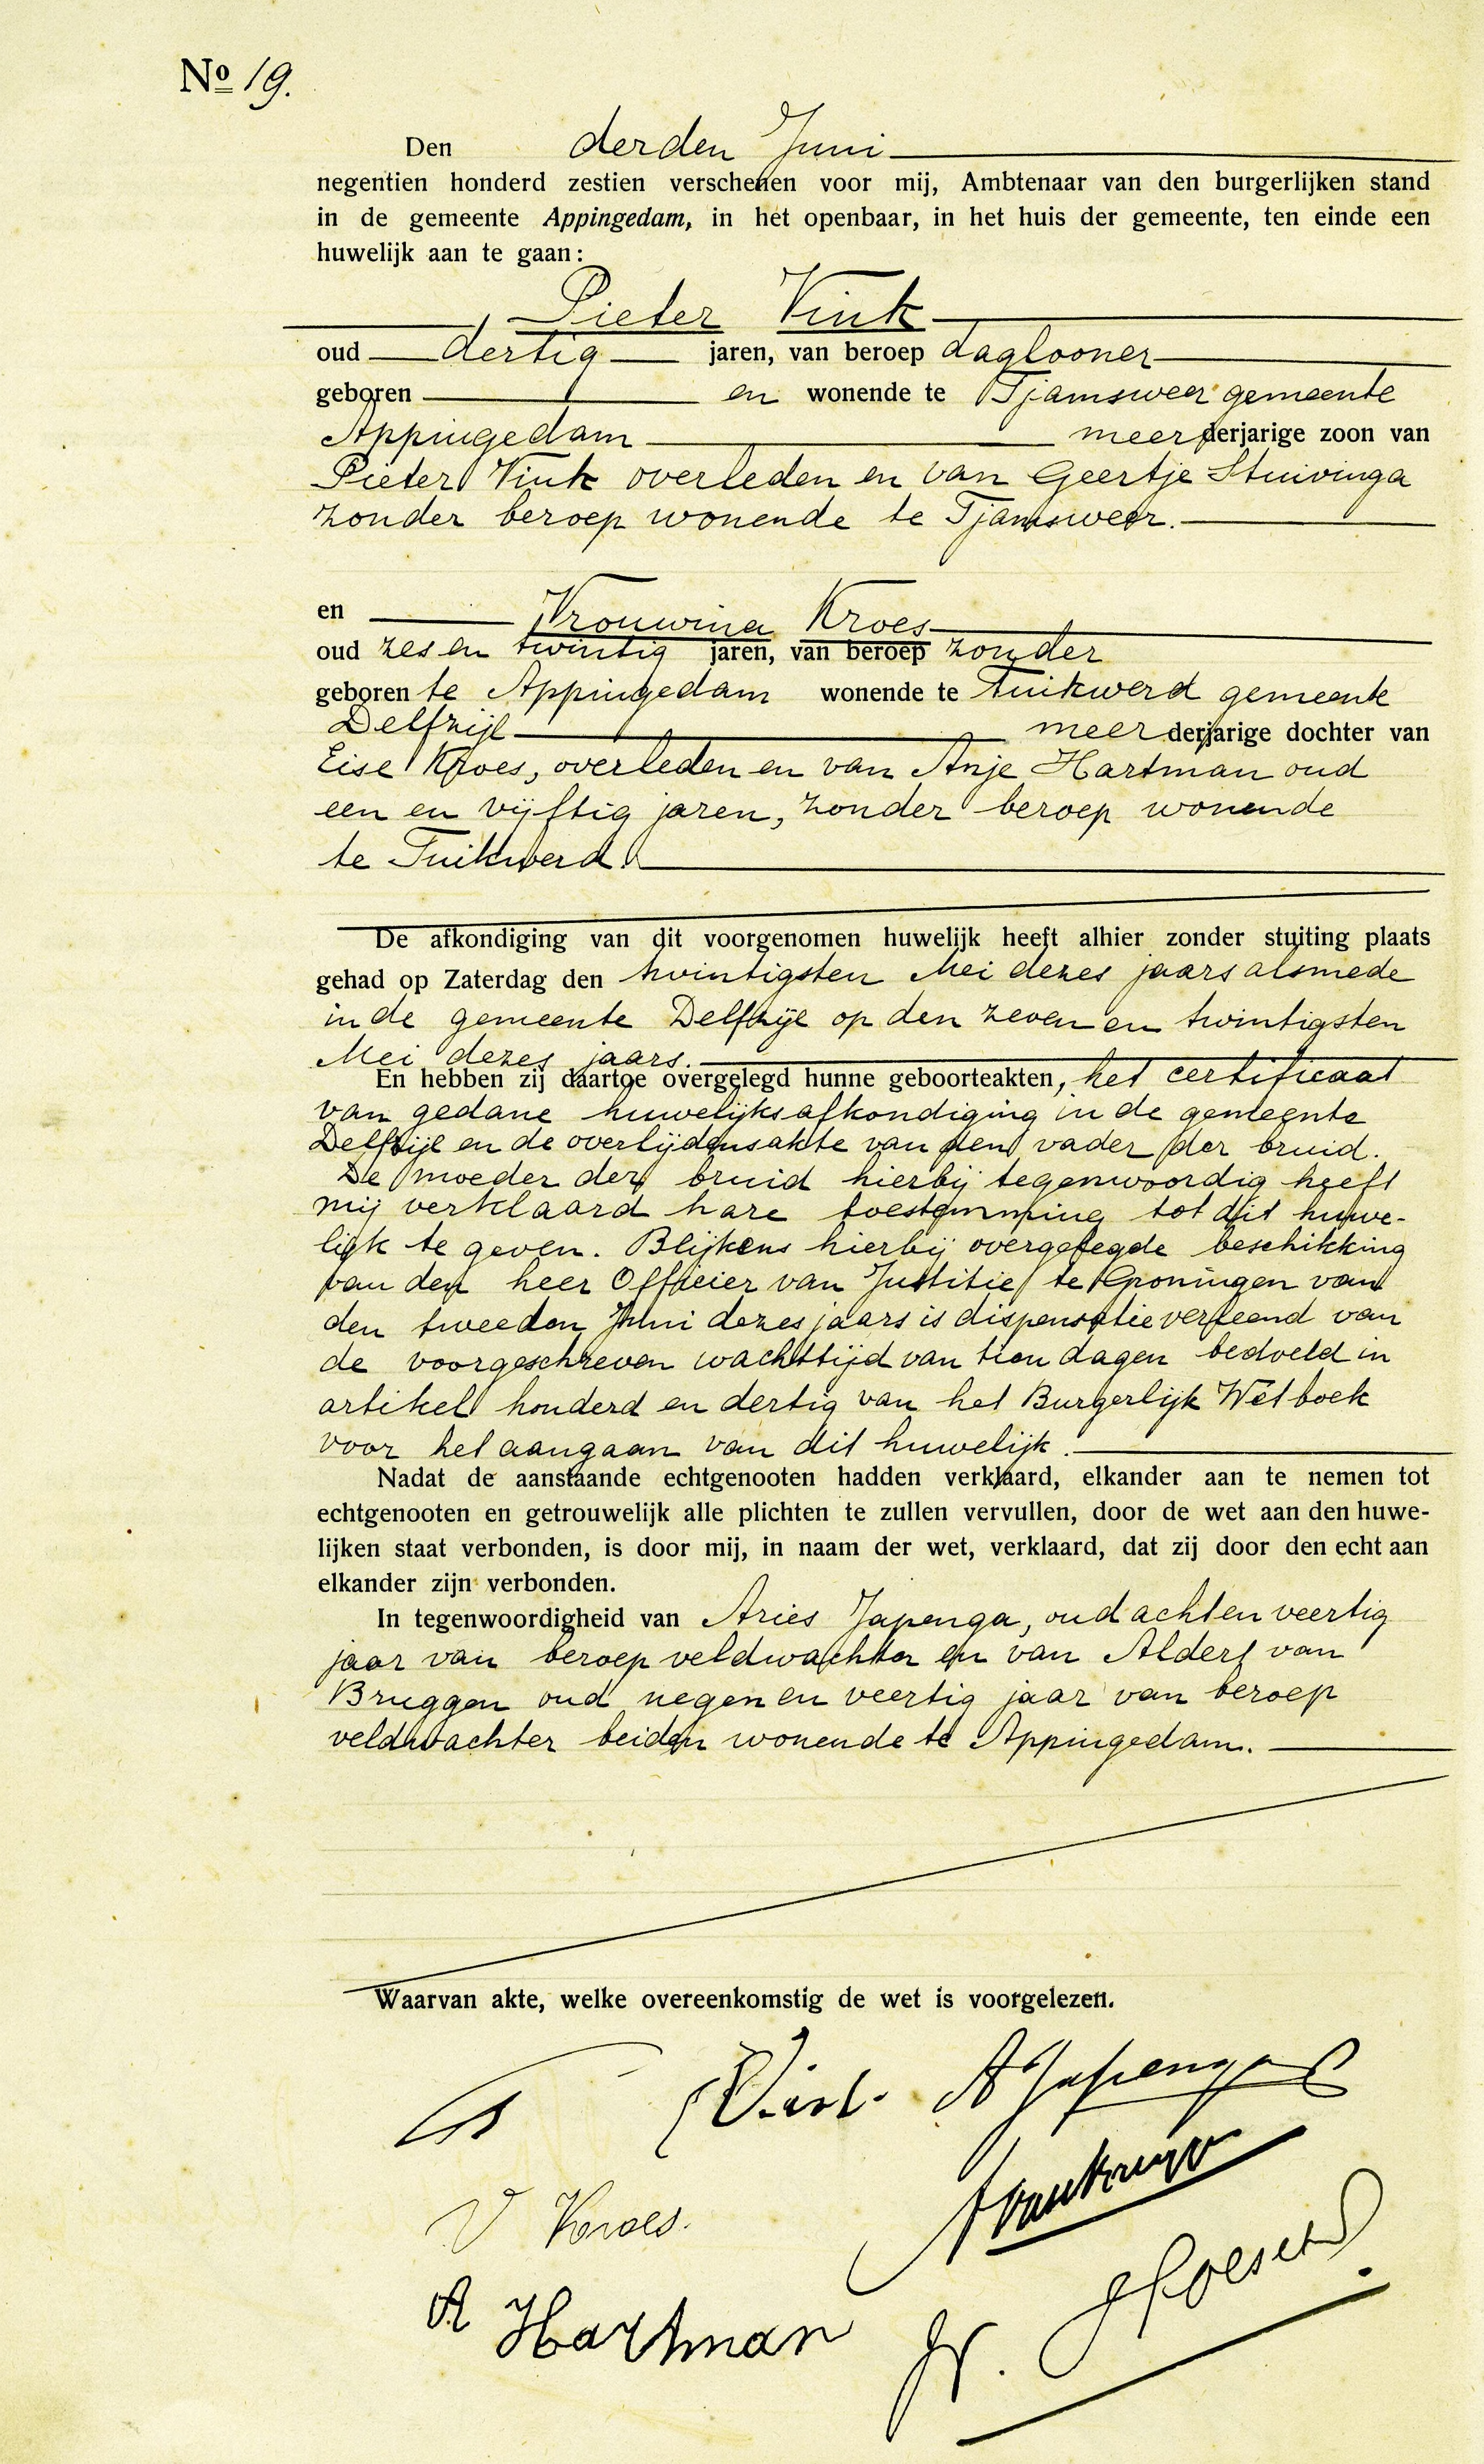 No 19.
Den derden Juni
negentien honderd zestien verschenen voor mij, Ambtenaar van den burgerlijken stand
in de gemeente Appingedam, in het openbaar, in het huis der gemeente, ten einde een
huwelijk aan te gaan:
Pieter Vink
oud dertig jaren, van beroep daglooner
geboren en wonende te Tjamsweer gemeente
Appingedam meerderjarige zoon van
Pieter Vink overleden en van Geertje Stuivinga
zonder beroep wonende te Tjamsweer.
en Vrouwina Kroes
oud zes en twintig jaren, van beroep zonder
geboren te Appingedam wonende te Tuikwerd gemeente
Delfzijl meerderjarige dochter van
Eise Kroes, overleden en van Anje Hartman oud
een en vijftig jaren, zonder beroep wonende
te Tuikwerd.
De afkondiging van dit voorgenomen huwelijk heeft alhier zonder stuiting plaats
gehad op Zaterdag den twintigsten Mei dezes jaars alsmede
in de gemeente Delfzijl op den zeven en twintigsten
Mei dezes jaars.
En hebben zij daartoe overgelegd hunne geboorteakten, het certificaat
van gedane huwelijksafkondiging in de gemeente
Delfzijl en de overlijdensakte van den vader der bruid.
De moeder der bruid hierbij tegenwoordig heeft
mij verklaard hare toestemming tot dit huwe-
lijk te geven. Blijkens hierbij overgelegde beschikking
van den heer Officier van Justitie te Groningen van
den tweeden Juni dezes jaars is dispensatie verleend van
de voorgeschreven wachttijd van tien dagen bedoeld in
artikel honderd en dertig van het Burgerlijk Wetboek
voor het aangaan van dit huwelijk.
Nadat de aanstaande echtgenooten hadden verklaard, elkander aan te nemen tot
echtgenooten en getrouwelijk alle plichten te zullen vervullen, door de wet aan den huwe-
lijken staat verbonden, is door mij, in naam der wet, verklaard, dat zij door den echt aan
elkander zijn verbonden.
In tegenwoordigheid van Aries Japenga, oud acht en veertig
jaar van beroep veldwachter en van Aldert van
Bruggen oud negen en veertig jaar van beroep
veldwachter beiden wonende te Appingedam.
Waarvan akte, welke overeenkomstig de wet is voorgelezen.
Vink A Japenga
V Kroes.
A Hartman